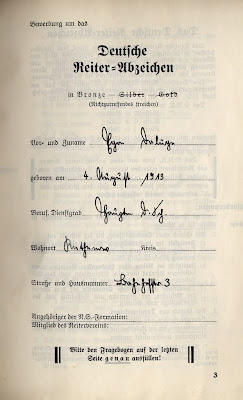 Bewerbung um das
Deutsche
Reiter-Abzeichen
in Bronze – Silber – Gold
(Nichtzutreffendes streichen)
Vor- und Zuname Egon
geboren am 4. August 1913
Beruf, Dienstgrad
Wohnort Rathenow Kreis
Straße und Hausnummer Bahnhofstr 3
Angehöriger der N.S.-Formation:
Mitglied des Reitervereins:
Bitte den Fragebogen auf der letzten
Seite genau ausfüllen!
3